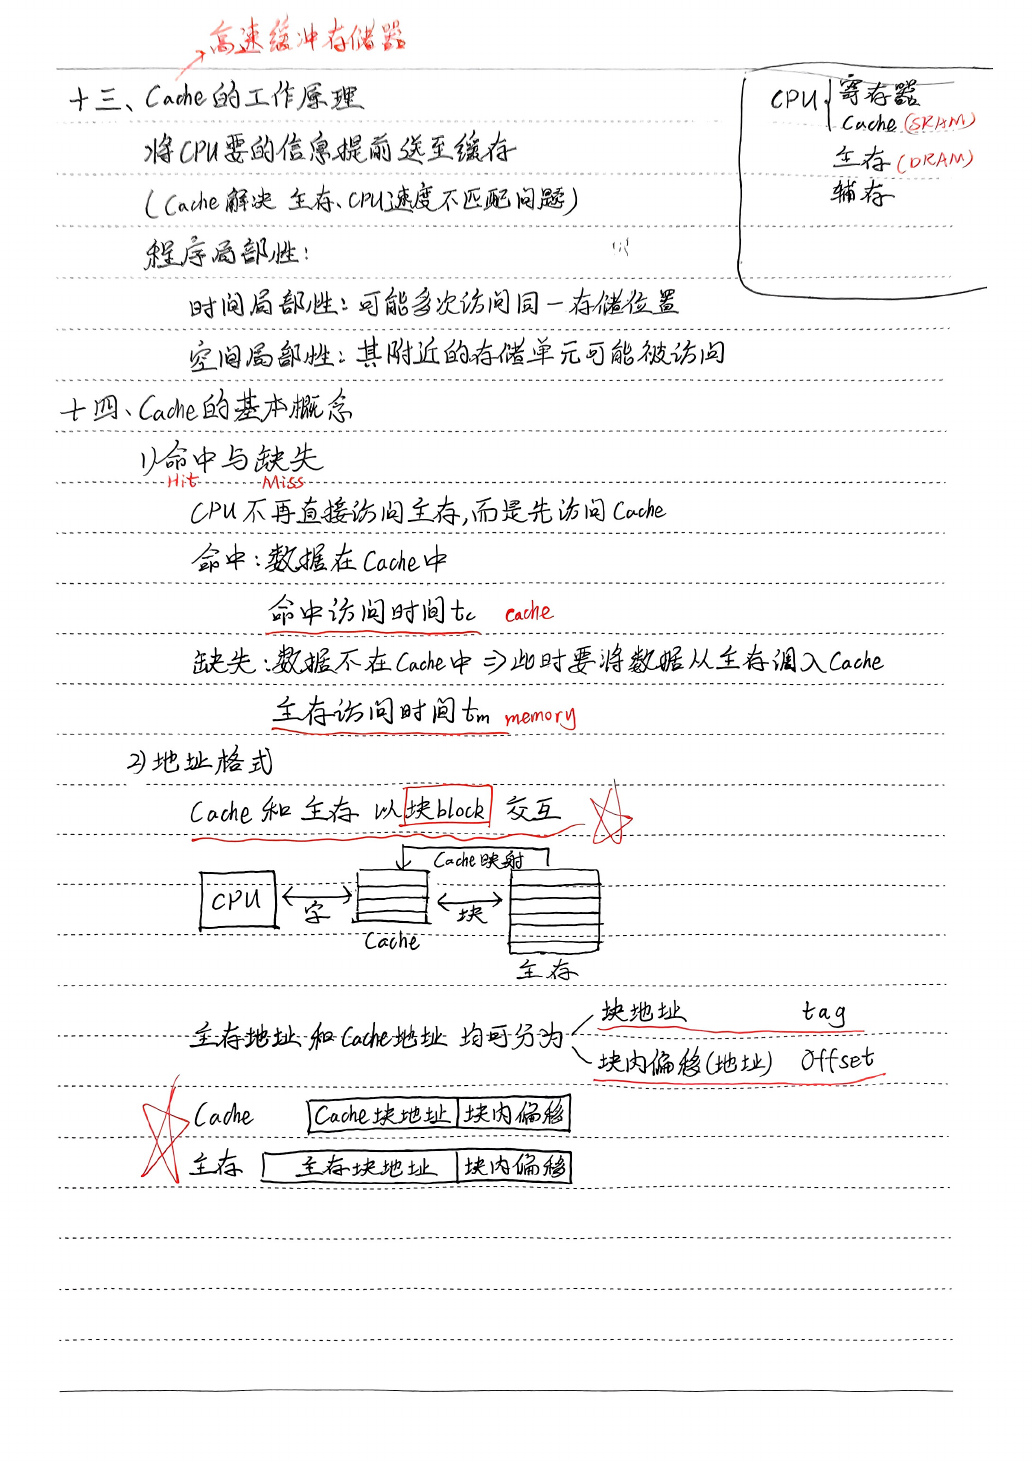 高速缓冲存储器
十三、Cache的工作原理
将CPU要的信息提前送至缓存
(Cache解决 主存、CPU速度不匹配问题)
程序局部性:
时间局部性:可能多次访问同一存储位置
空间局部性:其附近的存储单元可能被访问
CPU 寄存器
Cache (SRAM)
主存 (DRAM)
辅存
十四、Cache的基本概念
1)命中与缺失
Hit Miss
CPU不再直接访问主存,而是先访问Cache
命中:数据在Cache中
命中访问时间tc cache
缺失:数据不在Cache中⇒此时要将数据从主存调入Cache
主存访问时间tm memory
2)地址格式
Cache和主存以块block交互
Cache映射
CPU 字 块
Cache
主存
主存地址和Cache地址均可分为
块地址 tag
块内偏移(地址) Offset
Cache Cache块地址 块内偏移
主存 主存块地址 块内偏移